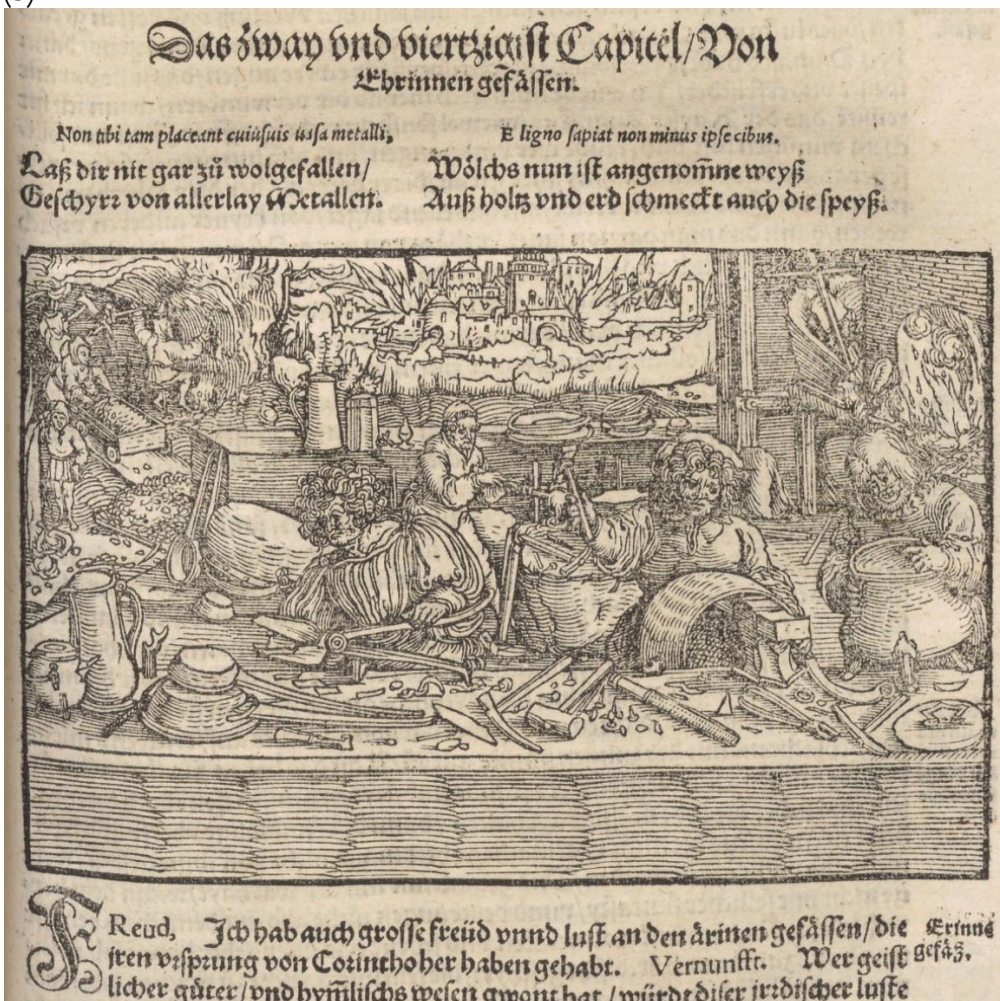 Das zway vnd viertzigist Capitel/Von
Ehrinnen gefässen.
Non tibi tam placeant cuiusuis uasa metalli,
E ligno sapiat non minus ipse cibus.
Laß dir nit gar zů wolgefallen/
Geschyrr von allerlay Metallen.
Wölchs nun ist angenom̃ne weyß
Auß holtz vnd erd schmeckt auch die speyß.
FReud, Ich hab auch grosse freüd vnnd lust an den ärinen gefässen/die
jren vrsprung von Corintho her haben gehabt. Vernunfft. Wer geist
licher güter/vnd hym̃lischs wesen gwont hat/würdt diser jrrdischer luste
Erinne
gefäß.